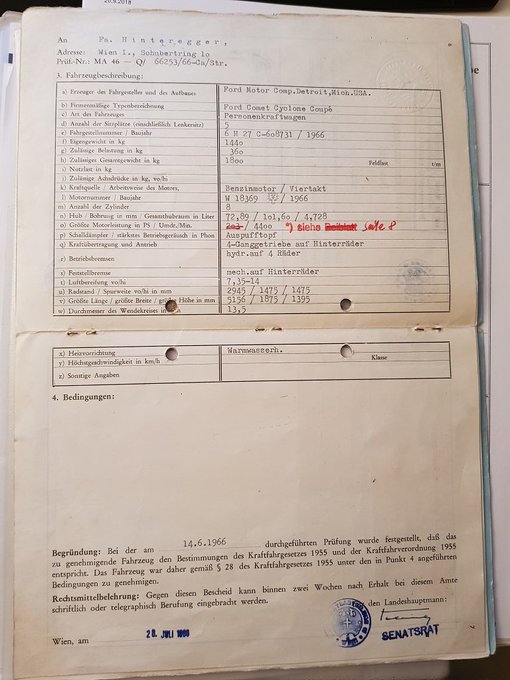 20.9.2018
An Fa. Hinteregger,
Adresse: Wien I., Schubertring 10
Prüf.-Nr.: MA 46 — Q/ 66253/66-Ca/Str.
3. Fahrzeugbeschreibung:
a) Erzeuger des Fahrgestelles und des Aufbaues Ford Motor Comp.Detroit,Mich.USA.
b) Firmenmäßige Typenbezeichnung Ford Comet Cyclone Coupé
c) Art des Fahrzeuges Personenkraftwagen
d) Anzahl der Sitzplätze (einschließlich Lenkersitz) 5
e) Fahrgestellnummer / Baujahr 6 H 27 C-608731 / 1966
f) Eigengewicht in kg 1440
g) Zulässige Belastung in kg 360
h) Zulässiges Gesamtgewicht in kg 1800 Feldlast t/m
i) Nutzlast in kg
j) Zulässige Achsdrücke in kg, vo/hi
k) Kraftquelle / Arbeitsweise des Motors, Benzinmotor / Viertakt
l) Motornummer / Baujahr W 18369 / 1966
m) Anzahl der Zylinder 8
n) Hub / Bohrung in mm / Gesamthubraum in Liter 72,89 / 101,60 / 4,728
o) Größte Motorleistung in PS / Umdr./Min. 203 / 4400 *) siehe Beiblatt Seite 8
p) Schalldämpfer / stärkstes Betriebsgeräusch in Phon Auspufftopf
q) Kraftübertragung und Antrieb 4-Ganggetriebe auf Hinterräder
r) Betriebsbremsen hydr.auf 4 Räder
s) Feststellbremse mech.auf Hinterräder
t) Luftbereifung vo/hi 7,35-14
u) Radstand / Spurweite vo/hi in mm 2945 / 1475 / 1475
v) Größte Länge / größte Breite / größte Höhe in mm 5156 / 1875 / 1395
w) Durchmesser des Wendekreises in 13,5
x) Heizvorrichtung Warmwasserh.
y) Höchstgeschwindigkeit in km/h Klasse
z) Sonstige Angaben
4. Bedingungen:
Begründung: Bei der am 14.6.1966 durchgeführten Prüfung wurde festgestellt, daß das
zu genehmigende Fahrzeug den Bestimmungen des Kraftfahrgesetzes 1955 und der Kraftfahrverordnung 1955
entspricht. Das Fahrzeug war daher gemäß § 28 des Kraftfahrgesetzes 1955 unter den in Punkt 4 angeführten
Bedingungen zu genehmigen.
Rechtsmittelbelehrung: Gegen diesen Bescheid kann binnen zwei Wochen nach Erhalt bei diesem Amte
schriftlich oder telegraphisch Berufung eingebracht werden.
den Landeshauptmann:
Wien, am 28. JULI 1966
SENATSRAT